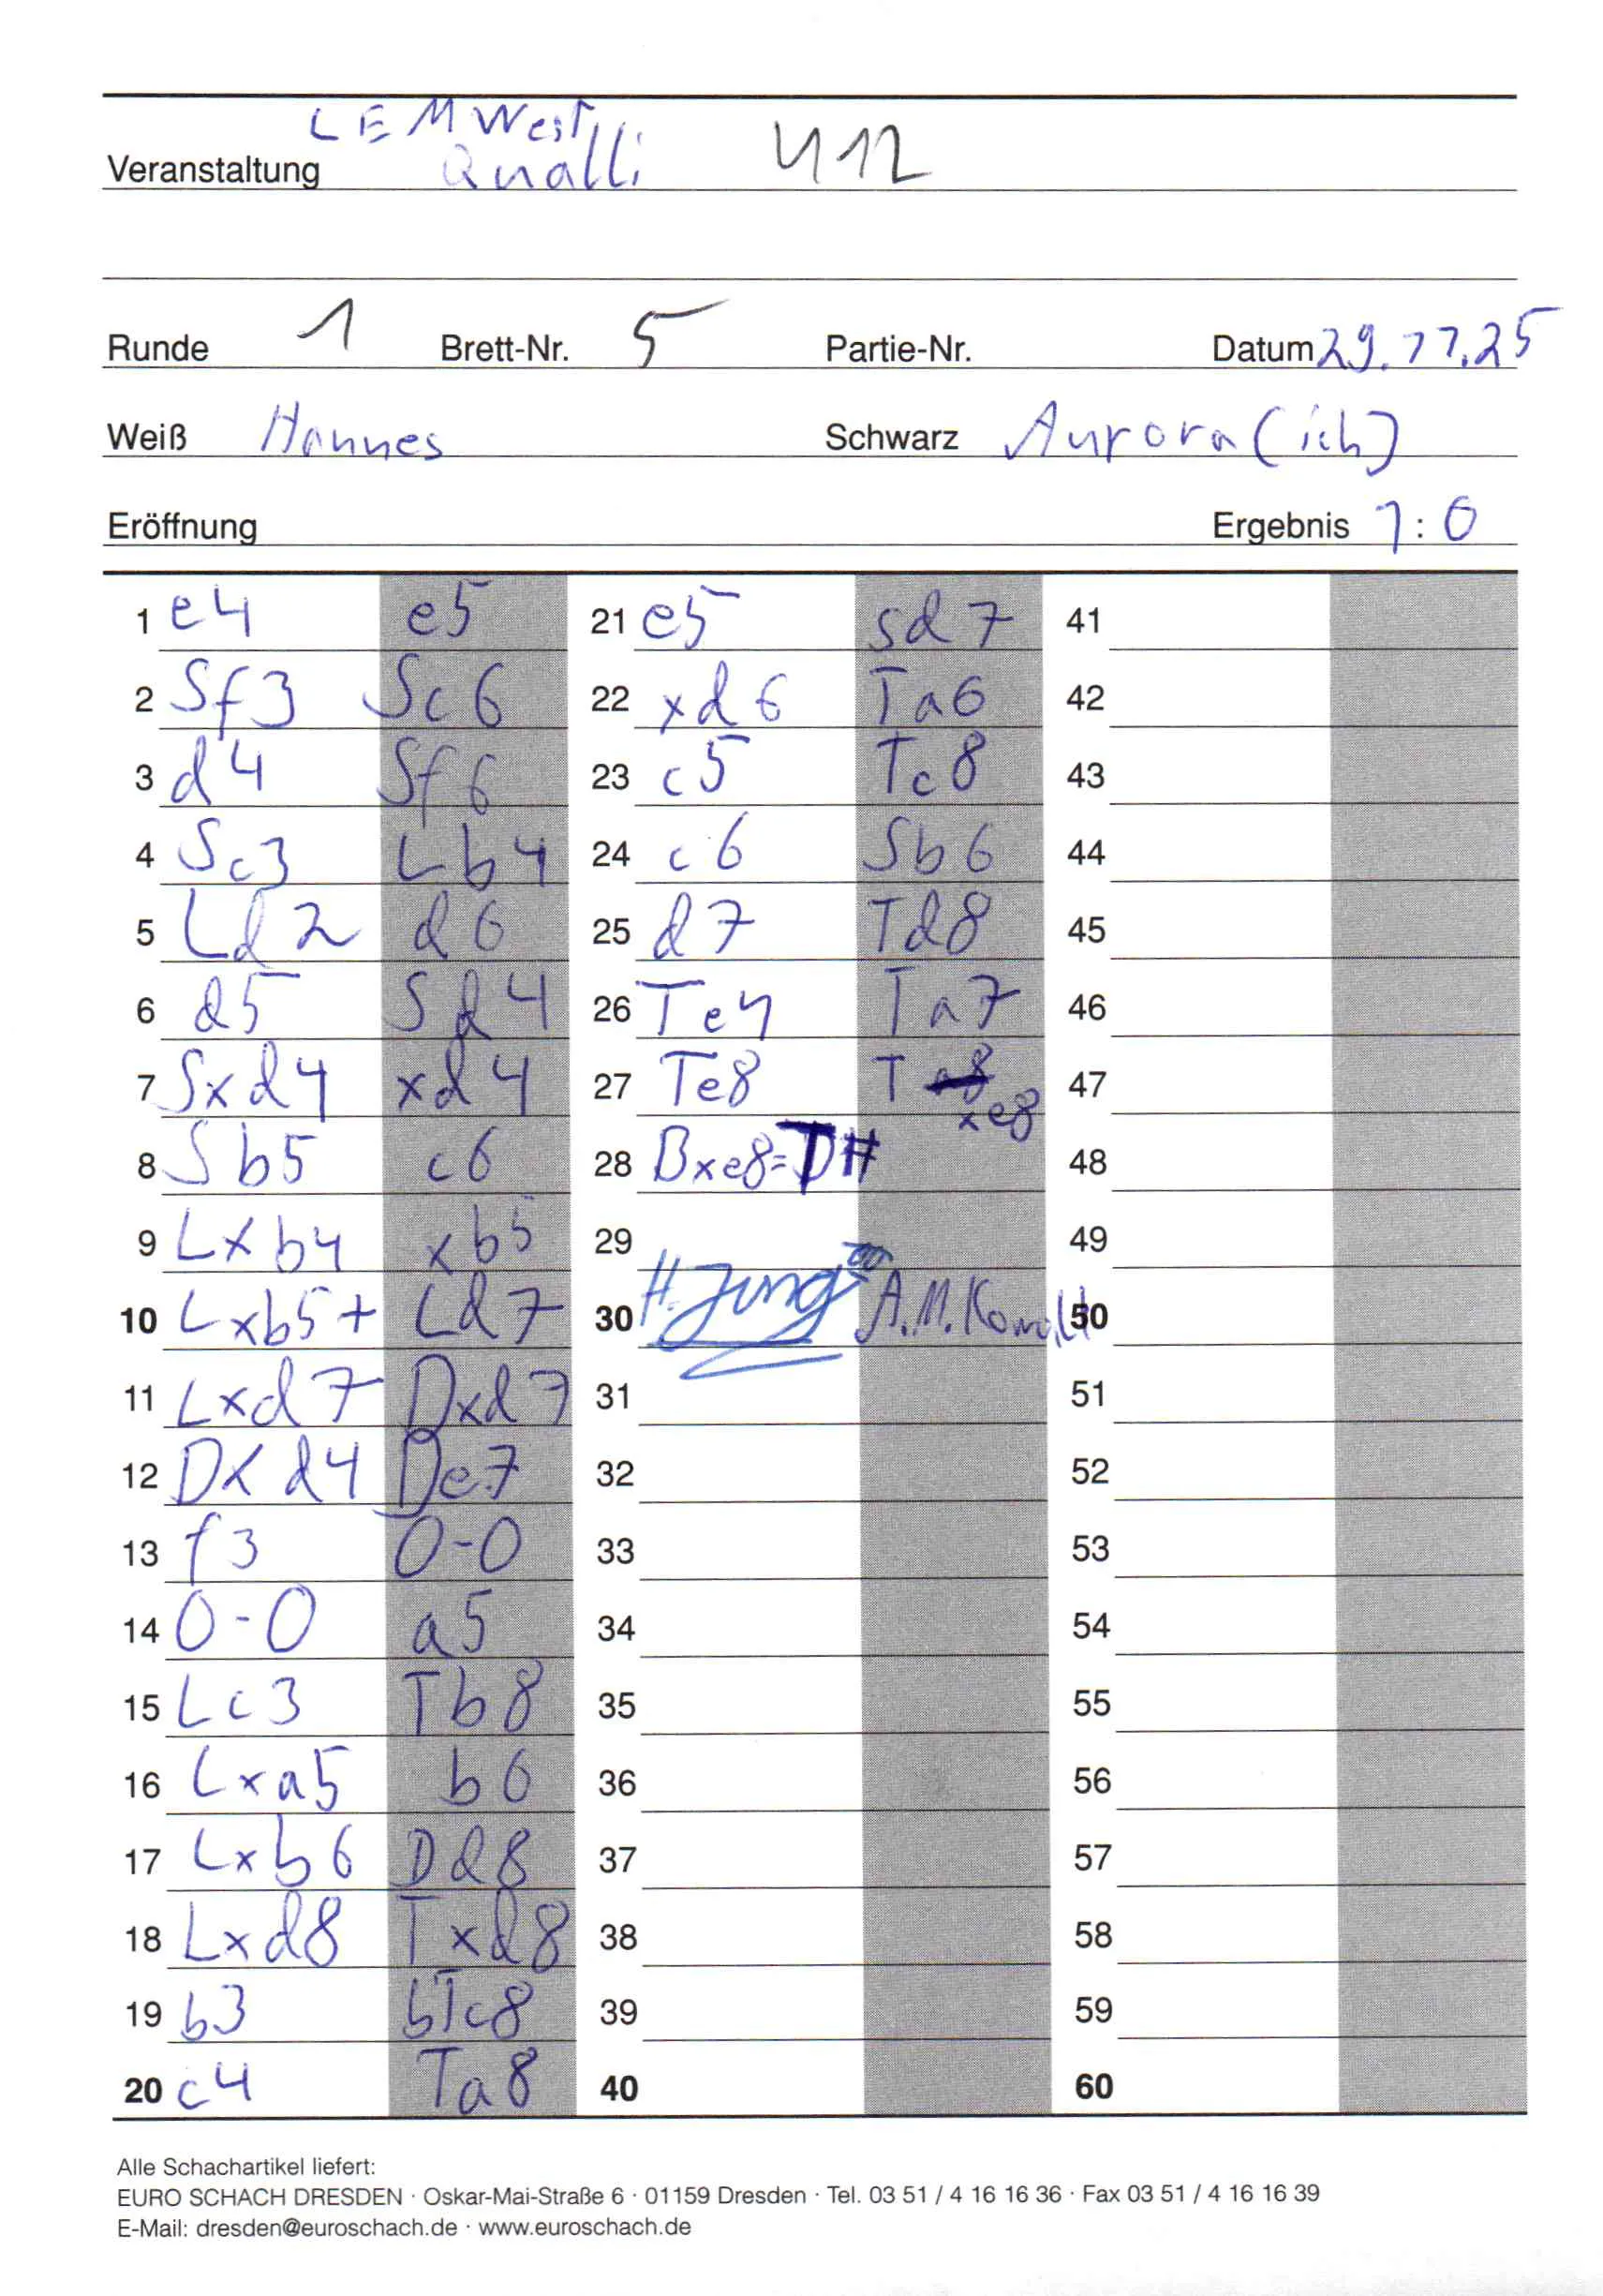 LEM West
Veranstaltung Qualli U12
Runde 1 Brett-Nr. 5 Partie-Nr. Datum 29.11.25
Weiß Hannes Schwarz Aurora (ich)
Eröffnung Ergebnis 1:0
1 e4 e5 21 e5 Sd7 41
2 Sf3 Sc6 22 xd6 Ta6 42
3 d4 Sf6 23 c5 Tc8 43
4 Sc3 Lb4 24 c6 Sb6 44
5 Ld2 d6 25 d7 Td8 45
6 d5 Sd4 26 Te4 Ta7 46
7 Sxd4 xd4 27 Te8 T xe8 47
8 Sb5 c6 28 Bxe8=D# 48
9 Lxb4 xb5 29 49
10 Lxb5+ Ld7 30 H. Jung A.M. 50
11 Lxd7 Dxd7 31 51
12 Dxd4 De7 32 52
13 f3 0-0 33 53
14 0-0 a5 34 54
15 Lc3 Tb8 35 55
16 Lxa5 b6 36 56
17 Lxb6 Dd8 37 57
18 Lxd8 Txd8 38 58
19 b3 bTc8 39 59
20 c4 Ta8 40 60
Alle Schachartikel liefert:
EURO SCHACH DRESDEN · Oskar-Mai-Straße 6 · 01159 Dresden · Tel. 03 51 / 4 16 16 36 · Fax 03 51 / 4 16 16 39
E-Mail: dresden@euroschach.de · www.euroschach.de